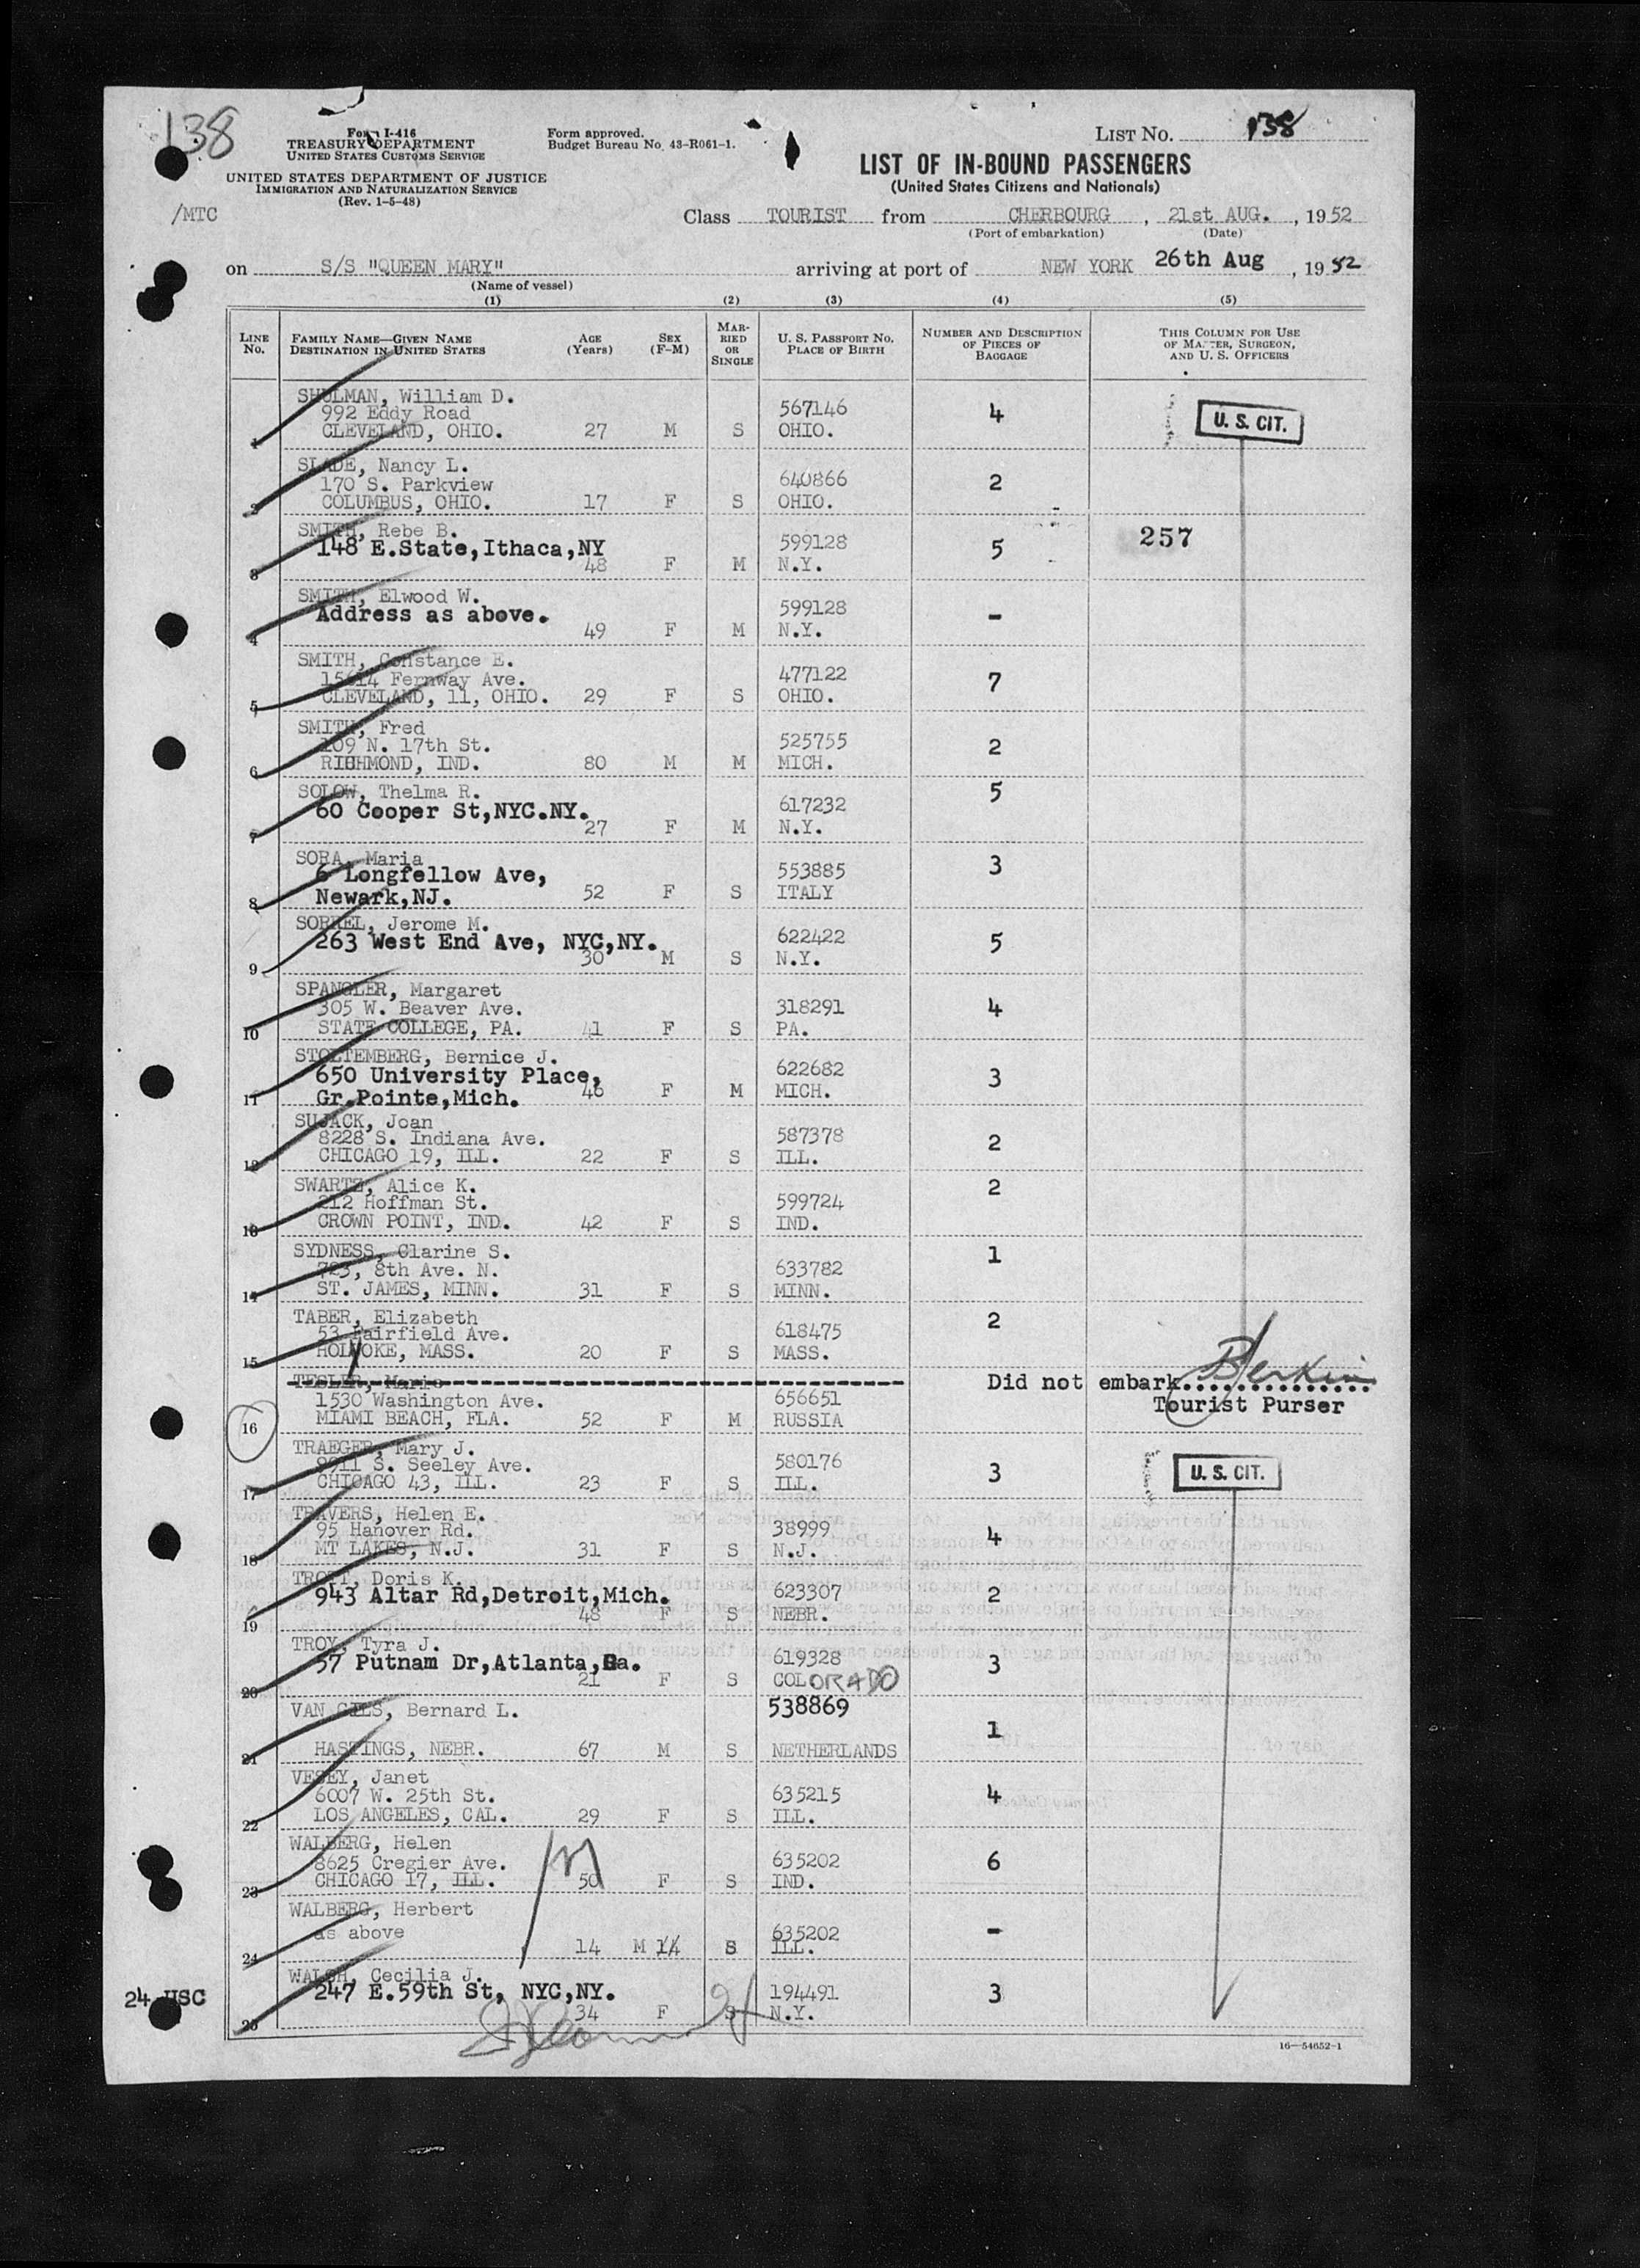 138
Form I-416
TREASURY DEPARTMENT
UNITED STATES CUSTOMS SERVICE
UNITED STATES DEPARTMENT OF JUSTICE
IMMIGRATION AND NATURALIZATION SERVICE
(Rev. 1-5-48)
/MTC
Form approved.
Budget Bureau No. 43-R061-1.
LIST NO. 138
LIST OF IN-BOUND PASSENGERS
(United States Citizens and Nationals)
Class TOURIST from CHERBOURG, 21st AUG., 1952
(Port of embarkation) (Date)
on S/S "QUEEN MARY" arriving at port of NEW YORK 26th Aug, 1952
(Name of vessel)
(1) (2) (3) (4) (5)
LINE NO. FAMILY NAME—GIVEN NAME DESTINATION IN UNITED STATES AGE (Years) SEX (F-M) MARRIED OR SINGLE U. S. PASSPORT NO. PLACE OF BIRTH NUMBER AND DESCRIPTION OF PIECES OF BAGGAGE THIS COLUMN FOR USE OF MASTER, SURGEON, AND U. S. OFFICERS
SHULMAN, William D.
992 Eddy Road 567146 4 U. S. CIT.
1 CLEVELAND, OHIO. 27 M S OHIO.
SLADE, Nancy L.
170 S. Parkview 640866 2
2 COLUMBUS, OHIO. 17 F S OHIO.
SMITH, Rebe B.
148 E.State,Ithaca,NY 599128 5 257
3 48 F M N.Y.
SMITH, Elwood W.
Address as above. 599128 -
4 49 F M N.Y.
SMITH, Constance E.
15614 Fernway Ave. 477122 7
5 CLEVELAND, 11, OHIO. 29 F S OHIO.
SMITH, Fred
109 N. 17th St. 525755 2
6 RICHMOND, IND. 80 M M MICH.
SOLOW, Thelma R. 5
60 Cooper St,NYC.NY. 617232
7 27 F M N.Y.
SORA, Maria
6 Longfellow Ave, 553885 3
8 Newark,NJ. 52 F S ITALY
SORREL, Jerome M.
263 West End Ave, NYC,NY. 622422 5
9 30 M S N.Y.
SPANGLER, Margaret
305 W. Beaver Ave. 318291 4
10 STATE COLLEGE, PA. 41 F S PA.
STOLTEMBERG, Bernice J.
650 University Place, 622682 3
11 Gr.Pointe,Mich. 46 F M MICH.
SUJACK, Joan
8228 S. Indiana Ave. 587378 2
12 CHICAGO 19, ILL. 22 F S ILL.
SWARTZ, Alice K. 2
212 Hoffman St. 599724
13 CROWN POINT, IND. 42 F S IND.
SYDNESS, Clarine S. 1
723, 8th Ave. N. 633782
14 ST. JAMES, MINN. 31 F S MINN.
TABER, Elizabeth 2
53 Fairfield Ave. 618475
15 HOLYOKE, MASS. 20 F S MASS.
TESLER, Marie Did not embark..............
1530 Washington Ave. 656651 Tourist Purser
16 MIAMI BEACH, FLA. 52 F M RUSSIA
TRAEGER, Mary J.
S. Seeley Ave. 580176 3 U. S. CIT.
17 CHICAGO 43, ILL. 23 F S ILL.
TRAVERS, Helen E.
95 Hanover Rd. 38999 4
18 MT LAKES, N.J. 31 F S N.J.
TROTT, Doris K.
943 Altar Rd,Detroit,Mich. 623307 2
19 48 F S NEBR.
TROY, Tyra J.
57 Putnam Dr,Atlanta,Ga. 619328 3
20 21 F S COLORADO
VAN GILS, Bernard L. 538869
1
21 HASTINGS, NEBR. 67 M S NETHERLANDS
VESEY, Janet
6007 W. 25th St. 635215 4
22 LOS ANGELES, CAL. 29 F S ILL.
WALBERG, Helen
8625 Cregier Ave. 635202 6
23 CHICAGO 17, ILL. 50 F S IND.
WALBERG, Herbert
as above 635202 -
24 14 M 14 S ILL.
WALSH, Cecilia J.
24 USC 247 E.59th St, NYC,NY. 194491 3
25 34 F S N.Y.
16—54652-1